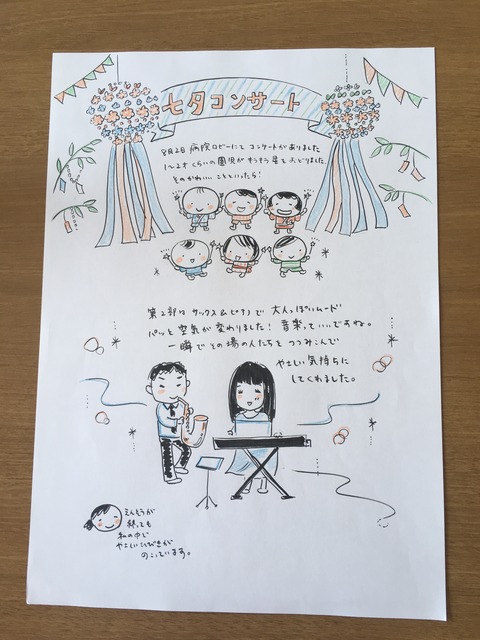 七夕コンサート
8月2日 病院ロビーにて コンサートがありました
1〜2才くらいの園児が きらきら星を おどりました。
そのかわいいことといったら!
第2部は サックス&ピアノで 大人っぽいムード
パッと 空気が 変わりました! 音楽って いいですね。
一瞬で その場の人たちを つつみこんで
やさしい 気持ちに
してくれました。
えんそうが
終っても
私の中で
やさしいひびきが
のこっています。